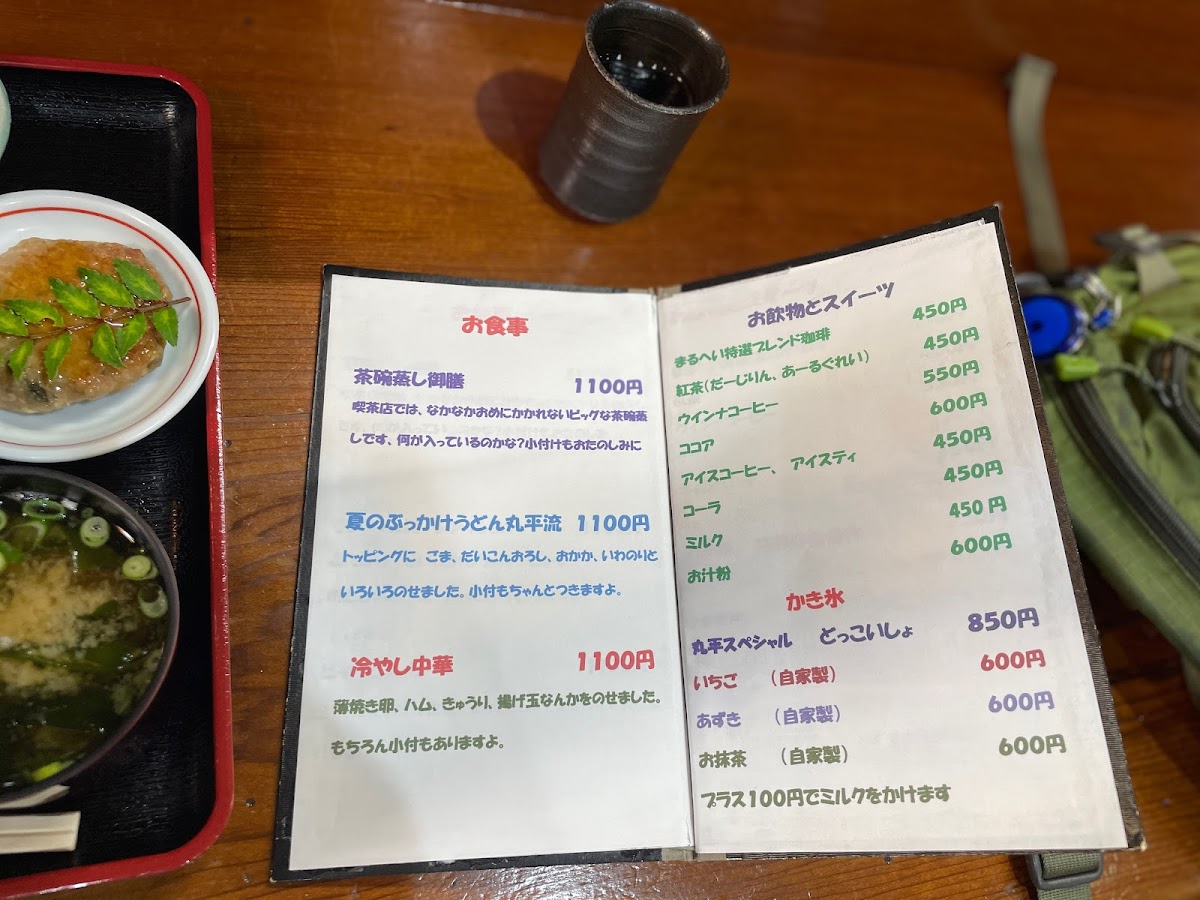 お食事
茶碗蒸し御膳 1100円
喫茶店では、なかなかおめにかかれないビッグな茶碗蒸
しです、何が入っているのかな?小付けもおたのしみに
夏のぶっかけうどん丸平流 1100円
トッピングに ごま、だいこんおろし、おかか、いわのりと
いろいろのせました。小付もちゃんとつきますよ。
冷やし中華 1100円
薄焼き卵、ハム、きゅうり、揚げ玉なんかをのせました。
もちろん小付もありますよ。
お飲物とスイーツ
まるへい特選ブレンド珈琲 450円
紅茶(だーじりん、あーるぐれい) 450円
ウインナコーヒー 550円
ココア 600円
アイスコーヒー、 アイスティ 450円
コーラ 450円
ミルク 450円
お汁粉 600円
かき氷
丸平スペシャル どっこいしょ 850円
いちご (自家製) 600円
あずき (自家製) 600円
お抹茶 (自家製) 600円
プラス100円でミルクをかけます